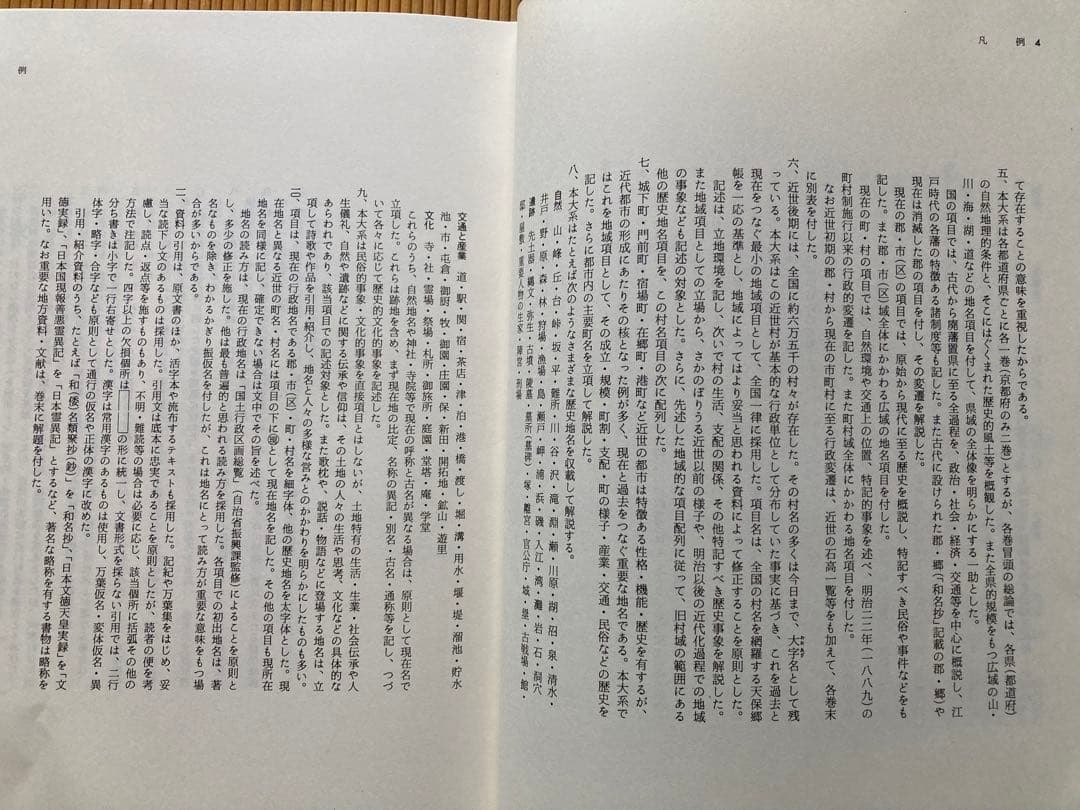 凡例 4
て存在することの意味を重視したからである。
五、本大系は各都道府県ごとに各一巻(京都府のみ二巻)とするが、各巻冒頭の総論では、各県(都道府)
の自然地理的条件と、そこにはぐくまれた歴史的風土等を概観した。また全県的規模をもつ広域の山・
川・海・湖・道などの地名項目を付して、県域の全体像を明らかにする一助とした。
国の項目では、古代から廃藩置県に至る全過程を、政治・社会・経済・交通等を中心に概説し、江
戸時代の各藩の特徴ある諸制度等も記した。また古代に設けられた郡・郷(「和名抄」記載の郡・郷)や
現在は消滅した郡の項目を付し、その変遷を解説した。
現在の郡・市(区)の項目では、原始から現代に至る歴史を概説し、特記すべき民俗や事件などをも
記した。また郡・市(区)域全体にかかわる広域の地名項目を付した。
現在の町・村の項目では、自然環境や交通上の位置、特記的事象を述べ、明治二二年(一八八九)の
町村制施行以来の行政的変遷を記した。また町村域全体にかかわる地名項目を付した。
なお近世初期の郡・村から現在の市町村に至る行政変遷は、近世の石高一覧等をも加えて、各巻末
に別表を付した。
六、近世後期には、全国に約六万五千の村々が存在した。その村名の多くは今日まで、大字名として残
っている。本大系はこの近世村が基本的な行政単位として分布していた事実に基づき、これを過去と
現在をつなぐ最小の地域項目として、全国一律に採用した。項目名は、全国の村名を網羅する天保郷
帳を一応の基準とし、地域によってはより妥当と思われる資料によって修正することを原則とした。
記述は、立地環境を記し、次いで村の生活、支配の関係、その他特記すべき歴史事象を解説した。
また地域項目としての立場から、さかのぼりうる近世以前の様子や、明治以後の近代化過程での地域
の事象なども記述の対象とした。さらに、先述した地域的な項目配列に従って、旧村域の範囲にある
他の歴史地名項目を、この村名項目の次に配列した。
七、城下町・門前町・宿場町・在郷町・港町など近世の都市は特徴ある性格・機能・歴史を有するが、
近代都市の形成にあたりその核となった例が多く、現在と過去をつなぐ重要な地名である。本大系で
はこれを地域項目として、その成立・規模・町割・支配・町の様子・産業・交通・民俗などの歴史を
記した。さらに都市内の主要町名を立項して解説した。
八、本大系はたとえば次のようなさまざまな歴史地名を収載して解説する。
自然 山・峰・丘・台・峠・坂・平・難所・川・谷・沢・滝・淵・瀬・川原・湖・沼・泉・清水・
井戸・野・原・森・林・狩場・漁場・島・瀬戸・岬・浦・浜・磯・入江・湾・灘・岩・石・洞穴
遺跡 先土器・縄文・弥生・古墳・陵墓・墓所(墓碑)・塚・離宮・官公庁・城・堡・古戦場・館・
邸・屋敷・重要人物の生家・陣営・刑場
例
交通と産業 道・駅・関・宿・茶店・津・泊・港・橋・渡し・堀・溝・用水・堰・堤・溜池・貯水
池・市・屯倉・御厨・牧・御園・荘園・保・新田・開拓地・鉱山・遊里
文化 寺・社・霊場・祭場・札所・御旅所・庭園・堂塔・庵・学堂
これらのうち、自然地名や神社・寺院等で現在の呼称と古名が異なる場合は、原則として現在名で
立項した。これらは跡地を含め、まず現在地の比定、名称の異記・別名・古名・通称等を記し、つづ
いて各々に応じて歴史的文化的事象を記述した。
九、本大系は民俗的事象・文化的事象を直接項目とはしないが、土地特有の生活・生業・社会伝承や人
生儀礼、自然や遺跡などに関する伝承や信仰は、その土地の人々の生活や思考、文化などの具体的な
あらわれであり、該当項目での記述対象とした。また歌枕や、説話・物語などに登場する地名は、立
項して詩歌や作品を引用・紹介し、地名と人々の多様な営みとのかかわりを明らかにしたものも多い。
一〇、項目は、現在の行政地名である郡・市(区)・町・村名を細字体、他の歴史地名を太字体とした。現
在地名と異なる近世の町名・村名には項目の下に(現)として現在地名を記した。その他の項目も現所在
地名を同様に記し、確定できない場合は文中でその旨を述べた。
地名の読み方は、現在の行政地名は「国土行政区画総覧」(自治省振興課監修)によることを原則と
し、多少の修正を施した。他は最も普遍的と思われる読み方を採用した。各項目での初出地名は、著
名なものを除き、わかるかぎり振仮名を付したが、これは地名にとって読み方が重要な意味をもつ場
合が多いからである。
一一、資料の引用は、原文書のほか、活字本や流布するテキストも採用した。記紀や万葉集をはじめ、妥
当な読下し文のあるものは採用した。引用文は底本に忠実であることを原則としたが、読者の便を考
慮し、読点・返点等を施すものもあり、不明・難読等の場合は必要に応じ、該当個所に括弧その他の
方法で注記した。四字以上の欠損個所は[　　]の形に統一し、文書形式を採らない引用では、二行
分ち書きは小字で一行右寄せとした。漢字は常用漢字のあるものは使用し、万葉仮名・変体仮名・異
体字・略字・合字なども原則として通行の仮名や正体の漢字に改めた。
引用・紹介資料のうち、たとえば「和(倭)名類聚抄(鈔)」を「和名抄」、「日本文徳天皇実録」を「文
徳実録」、「日本国現報善悪霊異記」を「日本霊異記」とするなど、著名な略称を有する書物は略称を
用いた。なお重要な地方資料・文献は、巻末に解題を付した。